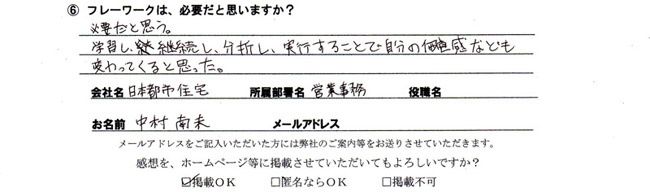 ⑥ フレーワークは、必要だと思いますか？
必要だと思う。
学習し、継続し、分析し、実行することで自分の価値感なども
変わってくると思った。
会社名 日本都市住宅 所属部署名 営業事務 役職名
お名前 中村 南未 メールアドレス
メールアドレスをご記入いただいた方には弊社のご案内等をお送りさせていただきます。
感想を、ホームページ等に掲載させていただいてもよろしいですか？
☑掲載ＯＫ □匿名ならＯＫ □掲載不可